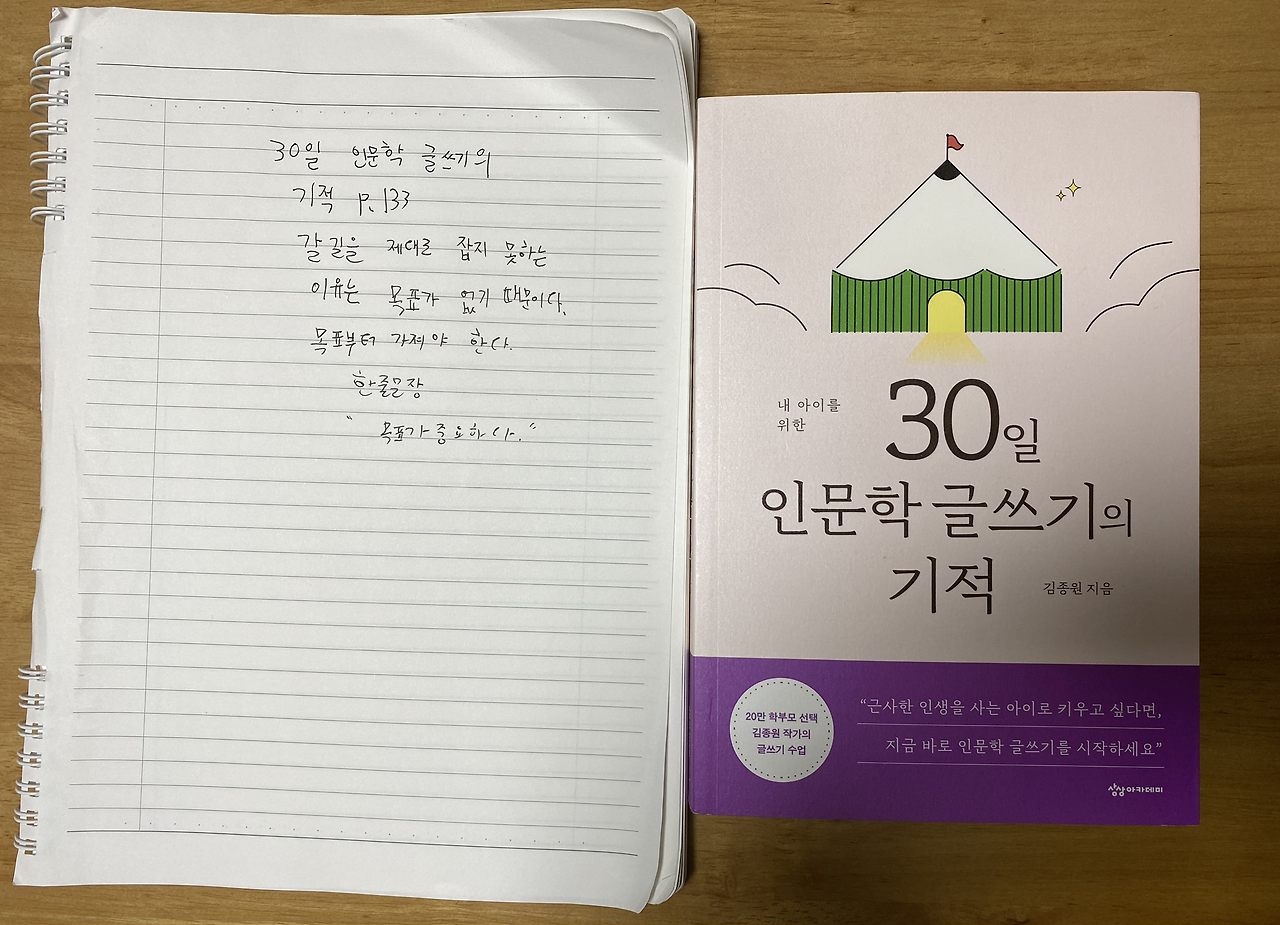 30일 인문학 글쓰기의
기적 p.133
갈길을 제대로 잡지 못하는
이유는 목표가 없기 때문이다.
목표부터 가져야 한다.
한줄문장
"목표가 중요하다."
내 아이를
위한
30일
인문학 글쓰기의
기적
김종원 지음
20만 학부모 선택
김종원 작가의
글쓰기 수업
“근사한 인생을 사는 아이로 키우고 싶다면,
지금 바로 인문학 글쓰기를 시작하세요”
상상아카데미